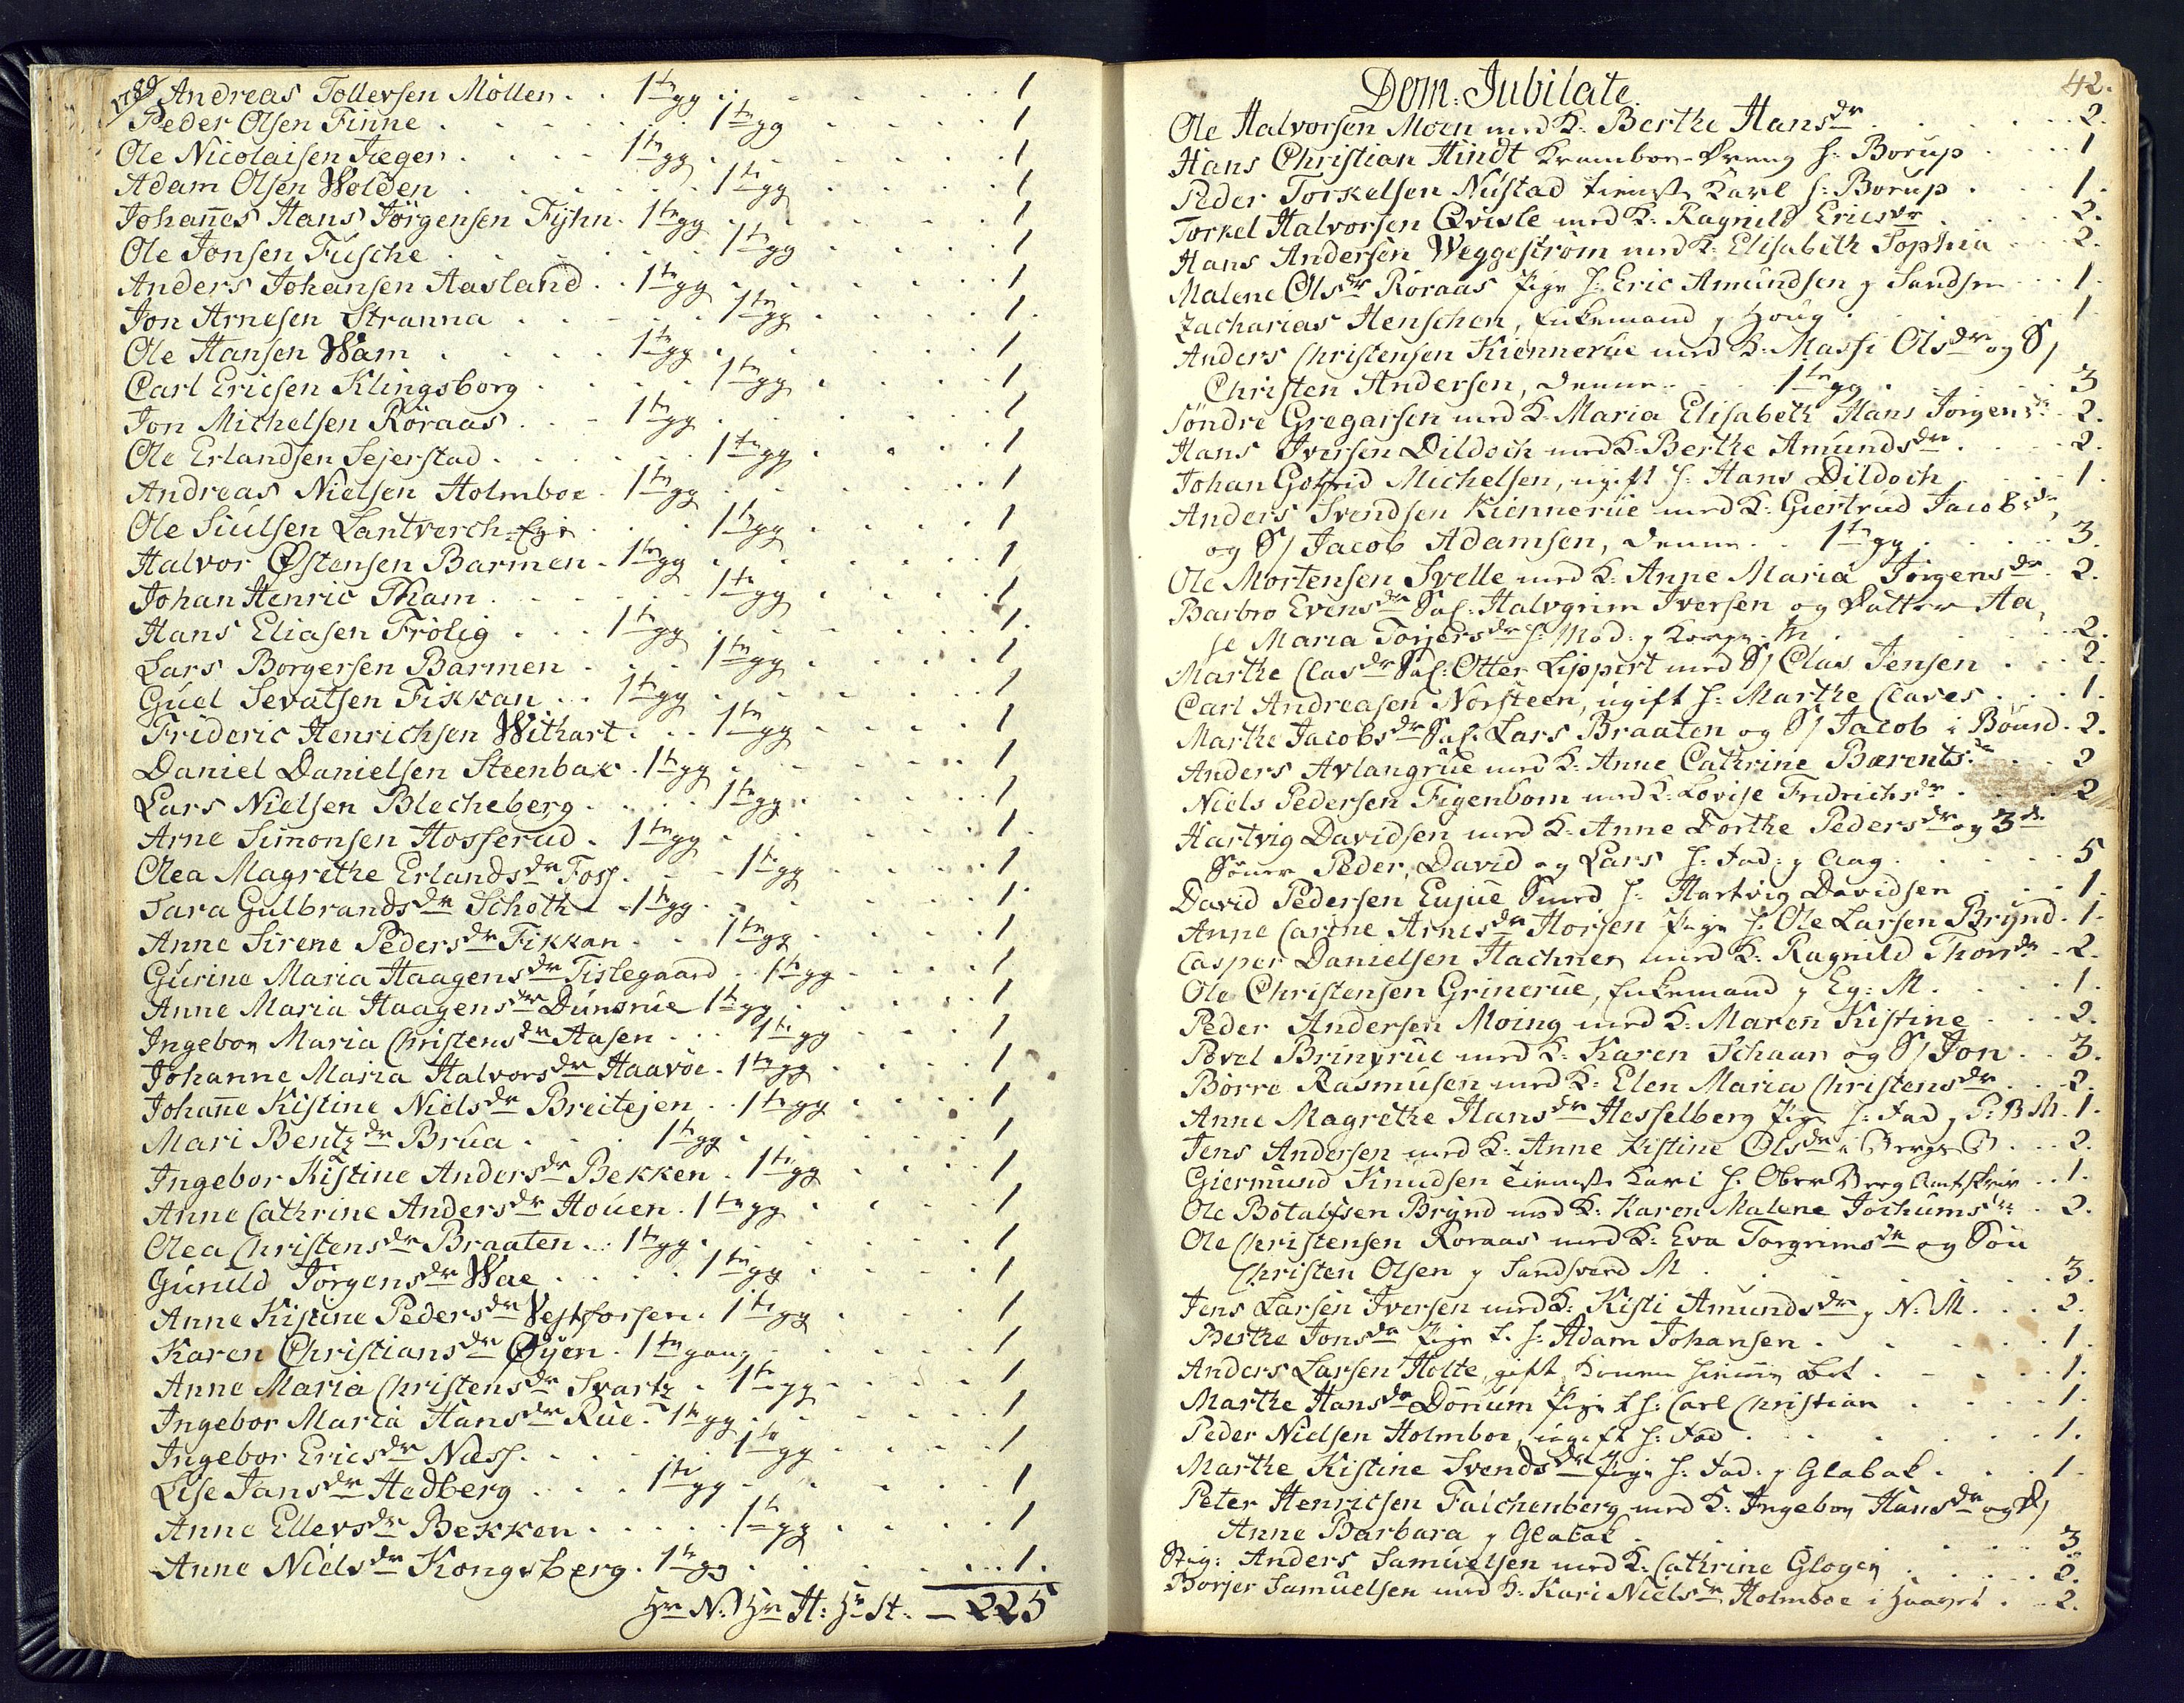 1789
Andreas Tollevsen Möllen . . 1te gg . . . . 1
Peder Olsen Finne . . . . 1te gg . . . 1
Ole Nicolaisen Jæger . . . 1te gg . . . . 1
Adam Olsen Wolden . . . . 1te gg . . . 1
Johanes Hans Jörgensen Fyhn . 1te gg . . . . 1
Ole Jonsen Fusche . . . . 1te gg . . . 1
Anders Johansen Aasland . . 1te gg . . . . 1
Jon Arnesen Stranna . . . . 1te gg . . . 1.
Ole Hansen Wam . . . . 1te gg . . . . 1
Carl Ericsen Klingsborg . . . . 1te gg . . . 1
Jon Michelsen Röraas . . . 1te gg . . . . 1
Ole Erlandsen Sejerstad . . . . 1te gg . . . 1
Andreas Nielsen Holmboe . 1te gg . . . . 1
Ole Siulsen Lantverch-Eje . . . 1te gg . . . 1
Halvor Østensen Barmen . 1te gg . . . . 1
Johan Henric Tham . . . . 1te gg . . . 1
Hans Eliasen Frölig . . . 1te gg . . . . 1.
Lars Borgersen Barmen . . . 1te gg . . . 1
Guel Sevatsen Fikkan . . 1te gg . . . . 1
Frideric Henrichsen Withart . . . 1te gg . . . 1
Daniel Danielsen Steenbak . 1te gg . . . . 1
Lars Nielsen Blecheberg . . . . 1te gg . . . 1
Arne Simonsen Hosserud . 1te gg . . . . 1.
Olea Magrethe Erlandsdr Foss . . . 1te gg . . . 1
Sara Gulbrandsdr Schoth . 1te gg . . . . 1.
Anne Sirene Pedersdr Fikkan . . 1te gg . . . 1
Gurine Maria Haagensdr Tislegaard . 1te gg . . . 1
Anne Maria Haagensdr Dunsrue 1te gg . . . . 1
Ingebor Maria Christensdr Aasen . . . 1te gg . . . 1
Johanne Maria Halvorsdr Haavoe . 1te gg . . . 1
Johane Kistine Nielsdr Breitejen . . 1te gg . . . 1
Mari Bentzdr Brua . . . . 1te gg . . . . 1
Ingebor Kistine Andersdr Bekken . 1te gg . . . 1
Anne Cathrine Andersdr Houen . 1te gg . . . 1
Olea Christensdr Braaten . . . 1te gg . . . . 1
Gunild Jörgensdr Wae . . . . 1te gg . . . 1
Anne Kistine Pedersdr Vestfossen . 1te gg . . . 1
Karen Christiansdr Øyen . 1te gang . . . . 1
Anne Maria Christensdr Svartz . 1te gg . . . 1
Ingebor Maria Hansdr Rue . 1te gg . . . . 1
Ingebor Ericsdr Næss . . . . 1te gg . . . 1
Lise Jansdr Hedberg . . . 1te gg . . . . 1
Anne Ellevsdr Bekken . . . . . 1te gg . . . 1
Anne Nielsdr Kongsberg . 1te gg . . . . 1.
Hr N: Hr H: Hr St: — 225
42.
Dom: Jubilate.
Ole Halvorsen Moen med K: Berthe Hansdr . . . . 2.
Hans Christian Hindt Kramboe-Dreng h: Borup . . . 1
Peder Torkelsen Nustad tieneste Karl h: Borup . . . 1.
Torkel Halvorsen Qvisle med K: Ragnild Ericsdr . . . 2.
Hans Andersen Weggeström med K: Elisabeth Sophia . . 2.
Malene Olsdr Röraas Pige h: Eric Amundsen p Sandsv . . 1.
Zacharias Henschen, Enkemand p Houg . . . . 1
Anders Christensen Kiennerue med K: Massi Olsdr og S/
Christen Andersen, denne . . 1te gg . . . . 3
Söndre Gregarsen med K: Maria Elisabeth Hans Jörgensdr . 2.
Hans Iversen Dildoch med K: Berthe Amundsdr . . . 2.
Johan Gotfrid Michelsen, ugift h: Hans Dildoch . . . 1.
Anders Svendsen Kiennerue med K: Giertrud Jacobsdr
og S/ Jacob Adamsen, denne . . 1te gg . . . . 3.
Ole Mortensen Svelle med K: Anne Maria Jörgensdr . 2.
Barbro Evensdr Sal: Halvgrim Iversen og Datter Aa,
se Maria Torjersdr h: Mod: p . . . 2.
Marthe Clasdr Sal: Otter Lippert med S/ Clas Jensen . . 2.
Carl Andreasen Norsteen, ugift h: Marthe Clases . . . 1.
Marthe Jacobsdr Sal: Lars Braaten og S/ Jacob i Böurd . 2.
Anders Avlangrue med K: Anne Cathrine Bærentsdr . . 2
Niels Pedersen Figenbom med K: Lovise Fridrichsdr . . . 2
Hartvig Davidsen med K: Anne Dorthe Pedersdr og 3de
Sönner Peder, David og Lars h: Fad: p Aag . . . . 5
David Pedersen Eujue Smed h: Hartvig Davidsen . . . 1.
Anne Carine Arnesdr Horsen Pige h: Ole Larsen Brynd . 1.
Casper Danielsen Hachner med K: Ragnild Thorsdr . 2.
Ole Christensen Grinerue, Enkemand p Eg: M . . . . 1.
Peder Andersen Moing med K: Maren Kistine . . . 2.
Povel Brinyrue med K: Karen Schaar og S/ Jon . . 3.
Börre Rasmusen med K: Elen Maria Christensdr . . 2.
Anne Magrethe Hansdr Hesselberg Pige h: Fad p P: B M . 1.
Jens Andersen med K: Anne Kistine Olsdr i . . . 2.
Giermund Knudsen tieneste Karl h: Ober Berg Amtskriv . . 1.
Ole Botalfsen Brynd med K: Karen Malene Jochumsdr . 2.
Ole Christensen Roraas med K: Eva Torgrimsdr og Sön
Christen Olsen p Sandsverd M . . . . 3.
Jens Larsen Iversen med K: Kisti Amundsdr p N: M . . . 2.
Berthe Jonsdr Pige t. h: Adam Johansen . . . . 1.
Anders Larsen Holte, gift, Konen . . . 1.
Marthe Hansdr Dörum Pige t h: Carl Christian . . . . 1.
Peder Nielsen Holmboe, ugift h: Fad . . . . 1.
Marthe Kistine Svendsdr Pige h: Fad: p Glabak . . . 1.
Peter Henricsen Falchenberg med K: Ingebor Hansdr og D/
Anne Barbara p Glabak . . . . 3
Stig: Anders Samuelsen med K: Cathrine Glogen . . . . 2.
Borjer Samuelsen med K: Kari Nielsdr Holmboe i . . 2.